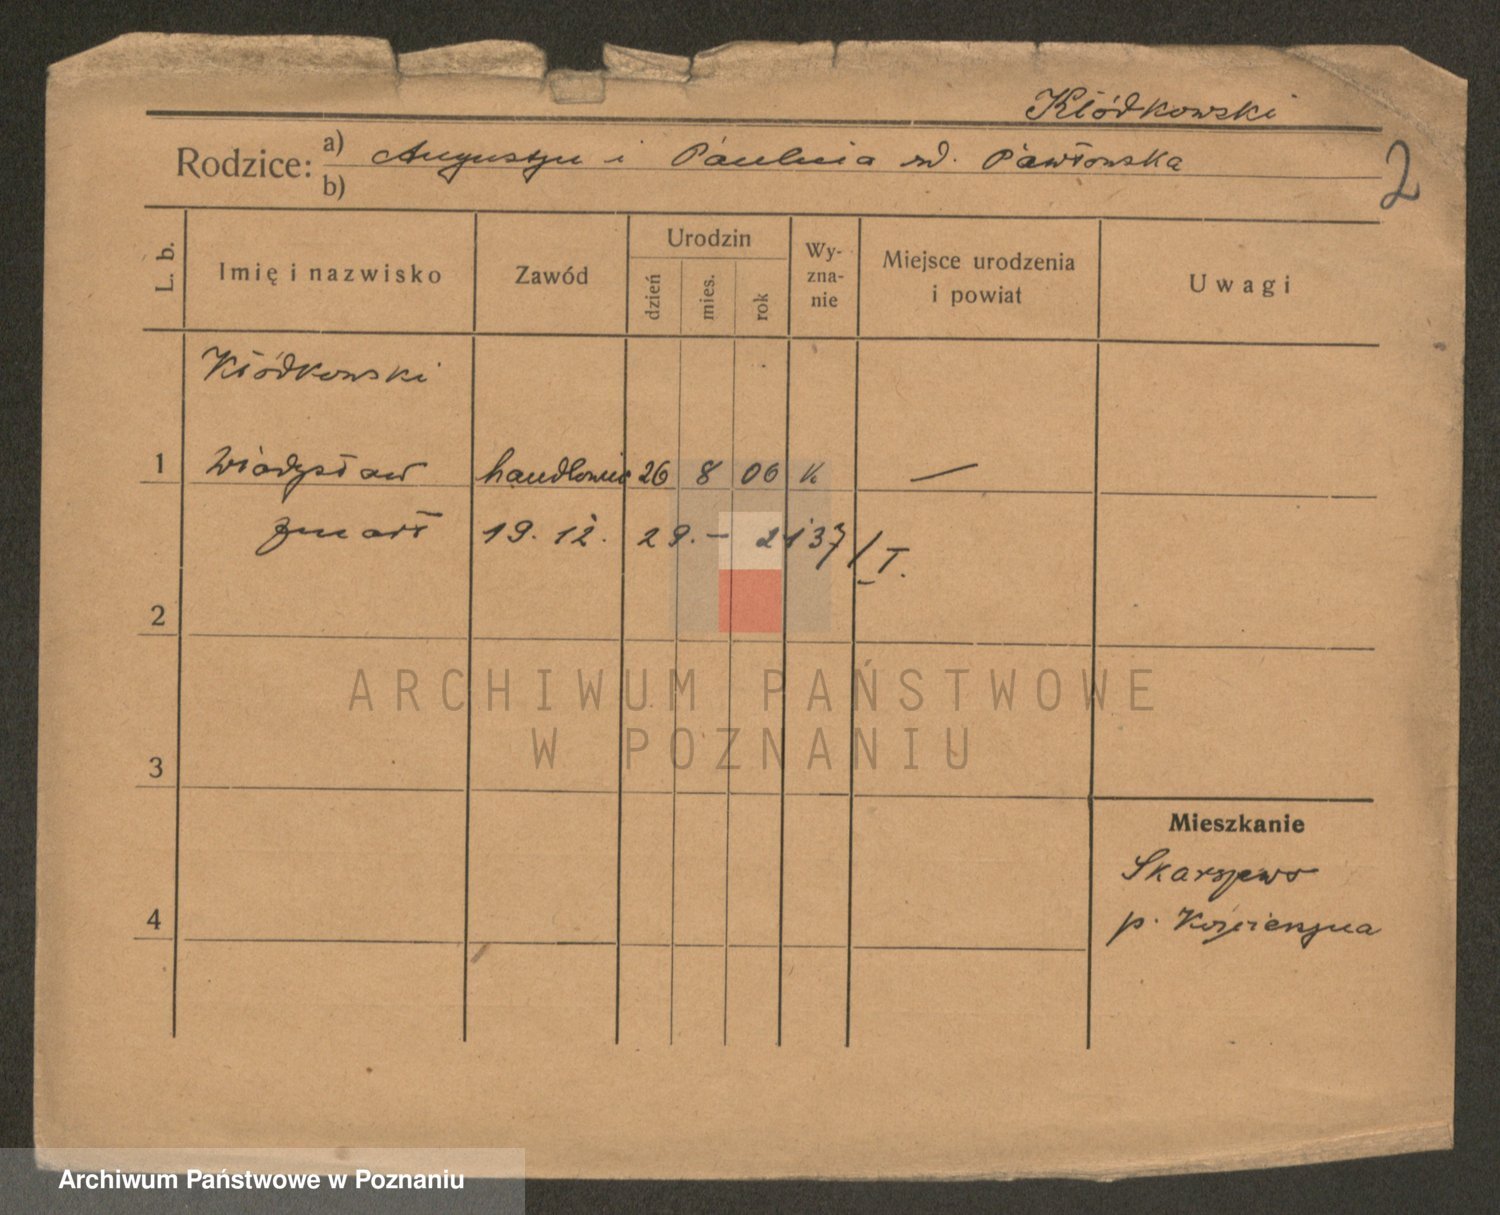 Kłódkowski
Rodzice: a) Augustyn i Paulina rd. Pawłowska
b)
2
L. b.
Imię i nazwisko
Zawód
Urodzin
dzień
mies.
rok
Wy-
zna-
nie
Miejsce urodzenia
i powiat
Uwagi
Kłódkowski
1 Władysław handlowiec 26 8 06 k. —
zmarł 19. 12. 29. – 2137/I.
2
ARCHIWUM PAŃSTWOWE
W POZNANIU
3
Mieszkanie
Skarszewo
4
p. Kościerzyna
Archiwum Państwowe w Poznaniu